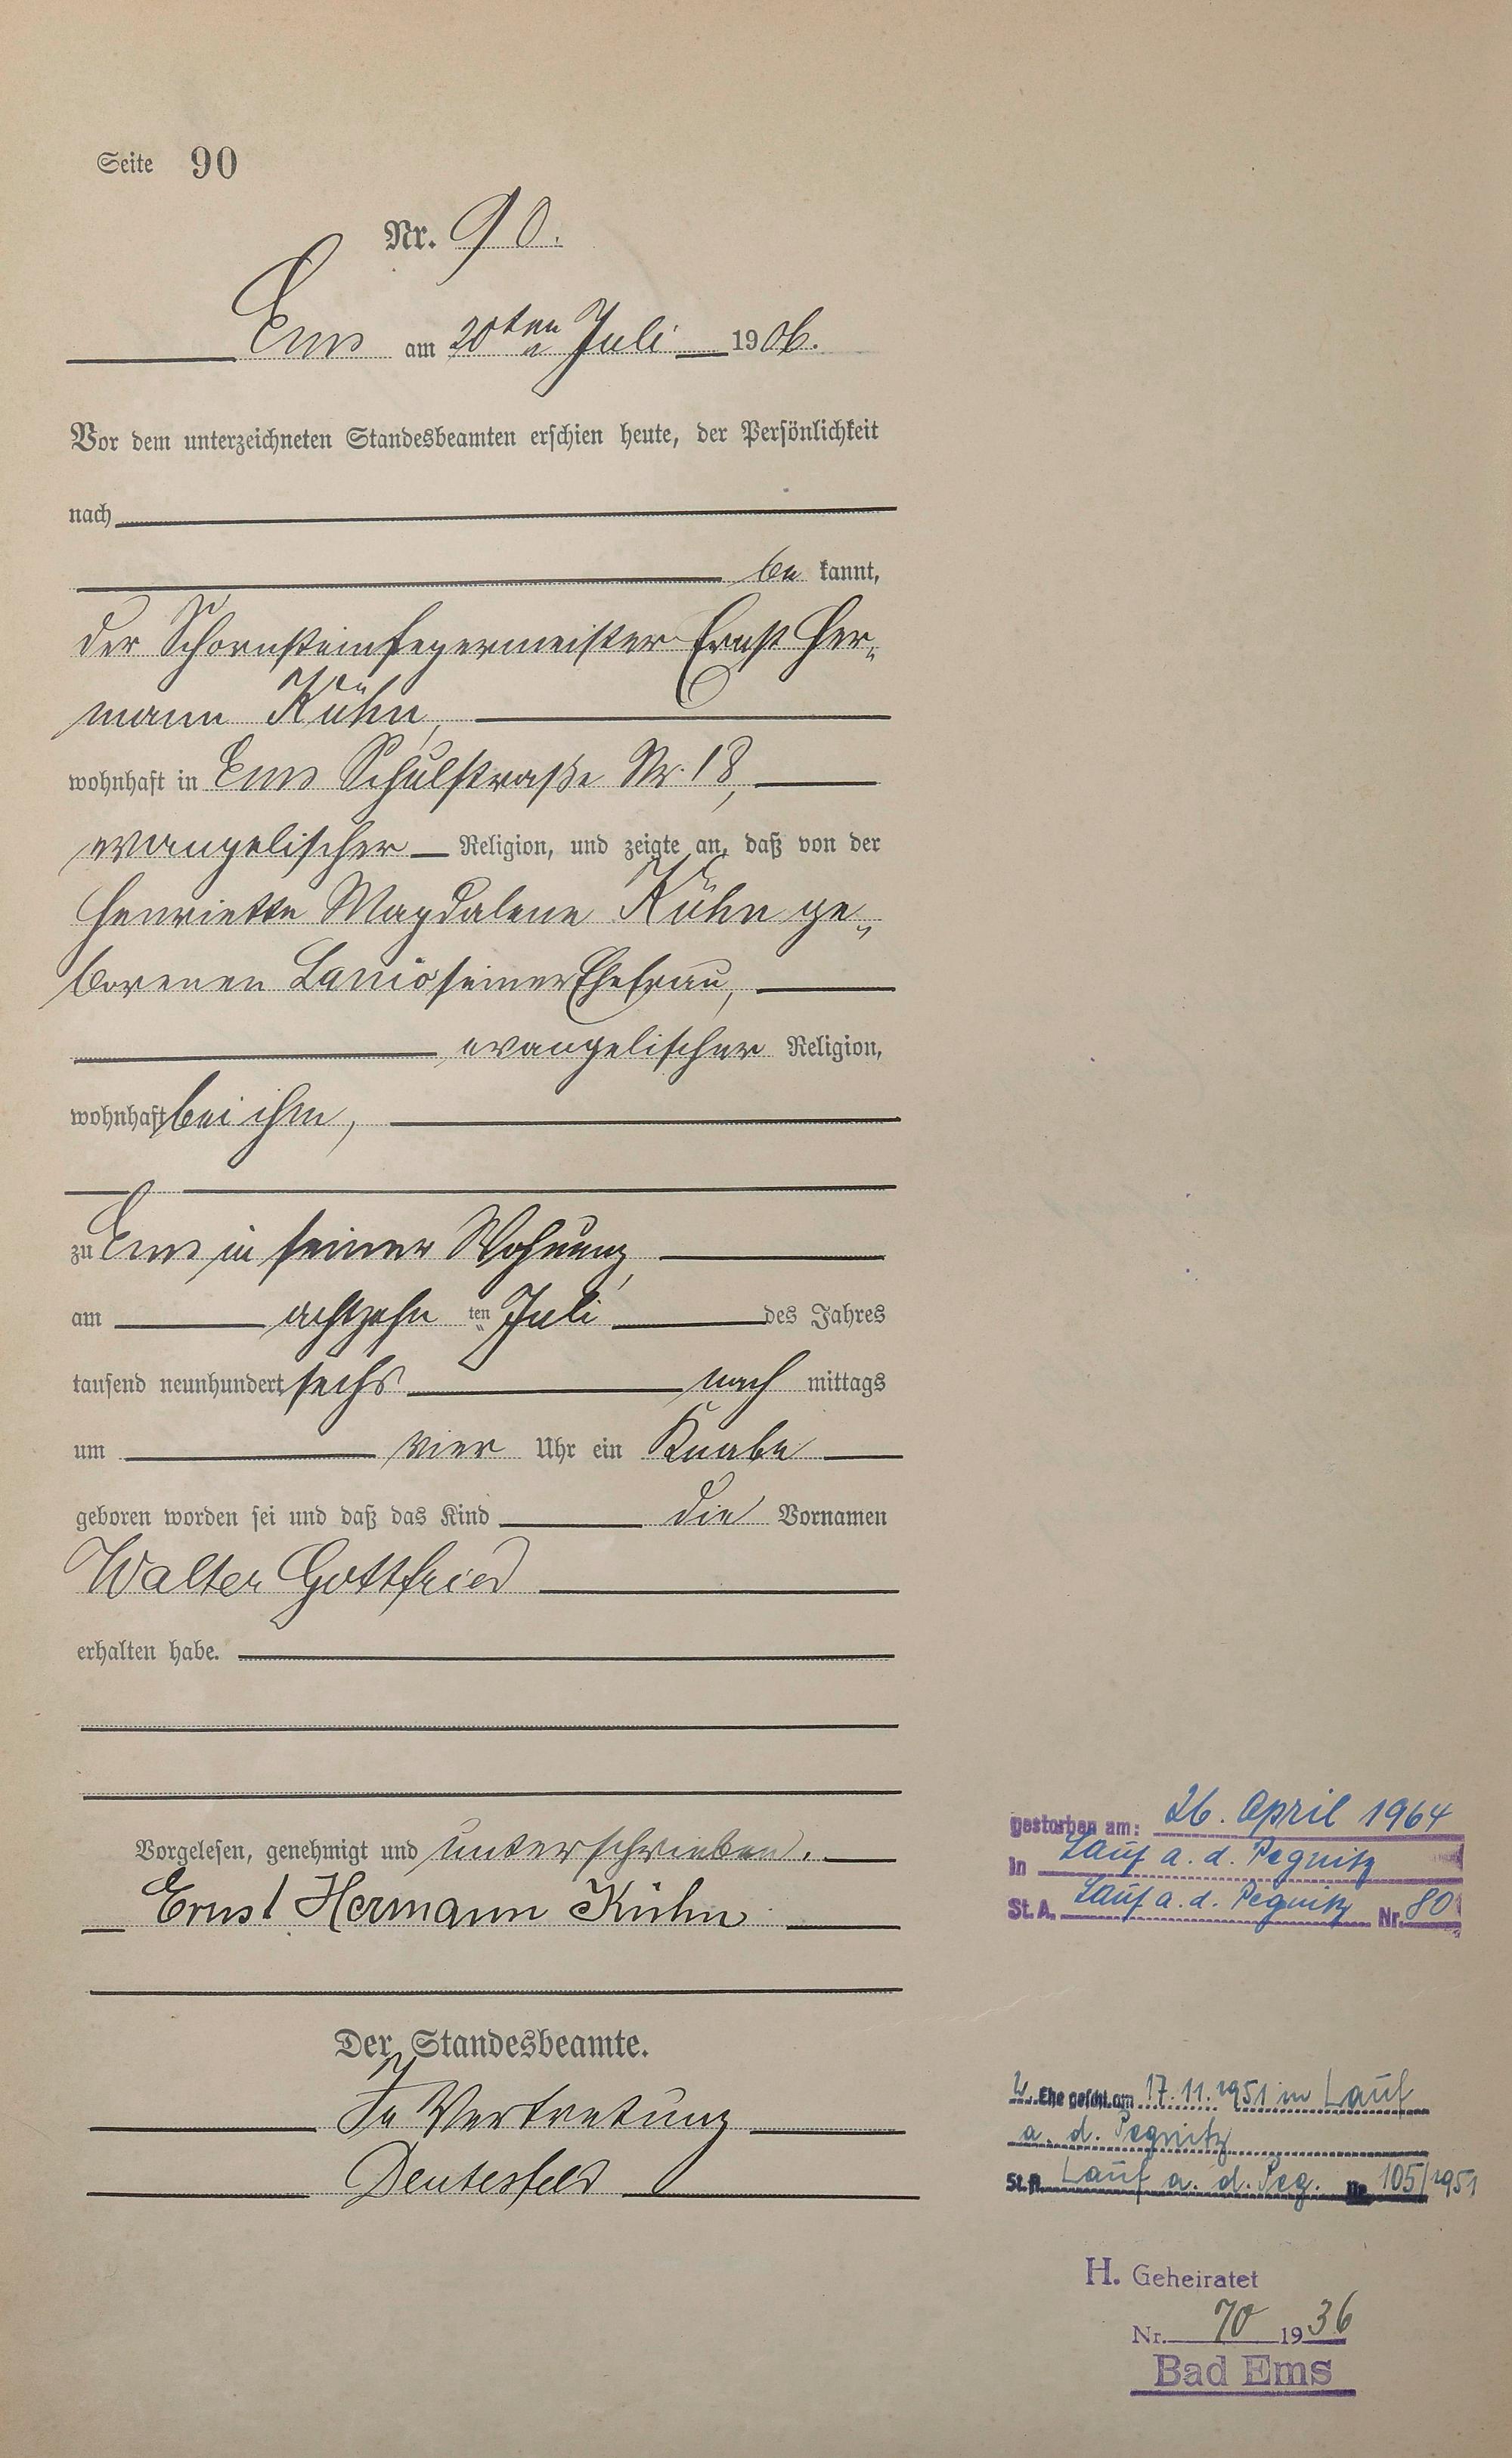 Seite 90
Nr. 90.
Ems am 20ten Juli 1906.
Vor dem unterzeichneten Standesbeamten erschien heute, der Persönlichkeit
nach
be kannt,
der Schornsteinfegermeister Ernst Her-
mann Kühn,
wohnhaft in Ems Schulstraße Nr. 18,
evangelischer Religion, und zeigte an, daß von der
Henriette Magdalene Kühn ge-
borenen Lanio seiner Ehefrau,
evangelischer Religion,
wohnhaft bei ihm,
zu Ems in seiner Wohnung,
am achtzehn ten Juli des Jahres
tausend neunhundert sechs nach mittags
um vier Uhr ein Knabe
geboren worden sei und daß das Kind die Vornamen
Walter Gottfried
erhalten habe.
Vorgelesen, genehmigt und unterschrieben.
Ernst Hermann Kühn
Der Standesbeamte.
In Vertretung
gestorben am: 26. April 1964
in Lauf a. d. Pegnitz
St. A. Lauf a. d. Pegnitz Nr. 80
Ehe geschl. am 17.11.1951 in Lauf
a. d. Pegnitz
St. A. Lauf a. d. Peg. Nr. 105/1951
H. Geheiratet
Nr. 70 1936
Bad Ems